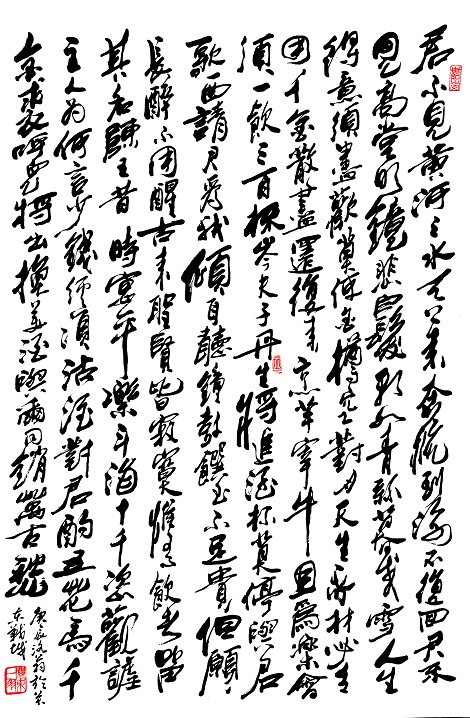 君不見黃河之水天上来奔流到海不復回君不
見高堂明鏡悲白髮朝如青絲暮成雪人生
得意須盡歡莫使金樽空對月天生我材必有
用千金散盡還復来烹羊宰牛且為樂會
須一飲三百杯岑夫子丹生將進酒杯莫停與君
歌一曲請君為我傾耳聽鐘鼓饌玉不足貴但願
長醉不用醒古来聖賢皆寂寞惟有飲者留
其名陳王昔時宴平樂斗酒十千恣歡謔
主人為何言少錢徑須沽酒對君酌五花馬千
金裘呼兒將出換美酒與爾同銷萬古愁
庚辰